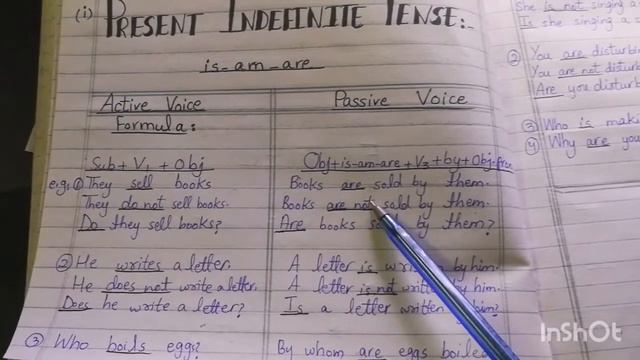 (i) PRESENT INDEFINITE TENSE:-
is-am-are
Active Voice
Formula:
Sub + V1 + Obj
e.g; ① They sell books
They do not sell books.
Do they sell books?
② He writes a letter.
He does not write a letter.
Does he write a letter?
③ Who boils eggs?
Passive Voice
Obj + is-am-are + V3 + by + Obj.
Books are sold by them.
Books are not sold by them.
Are books sold by them?
A letter is by him.
A letter is not by him.
Is a letter written him?
By whom are eggs
She is not singing a
Is she singing a
② You are
You are not
Are you
③ Who is
④ Why are you
InShOt